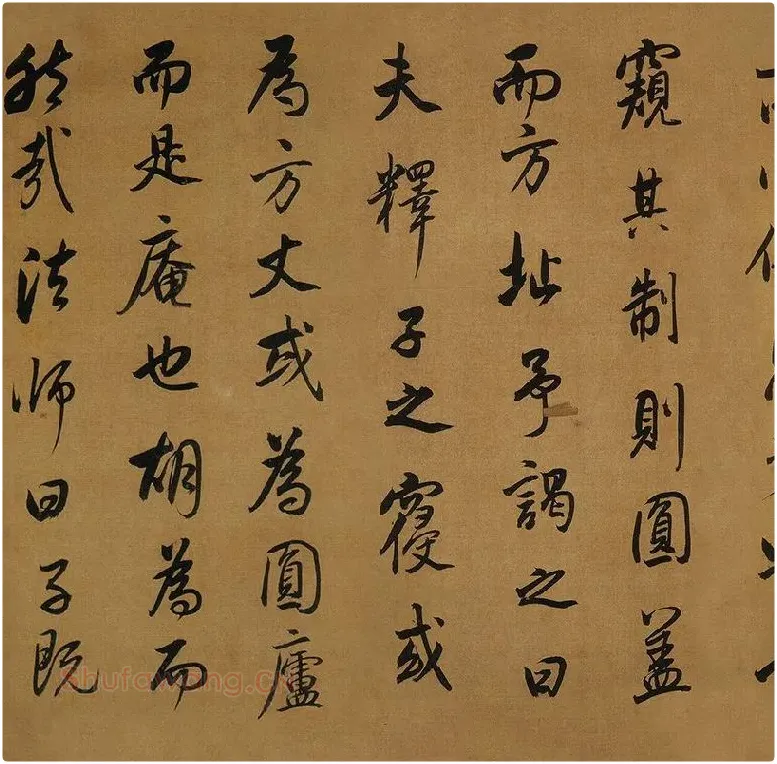 窺其制則圓盖
而方址予謁之曰
夫釋子之覆或
為方丈或為圓廬
而是庵也胡為而
然哉法师曰子既
Shufawang.cn